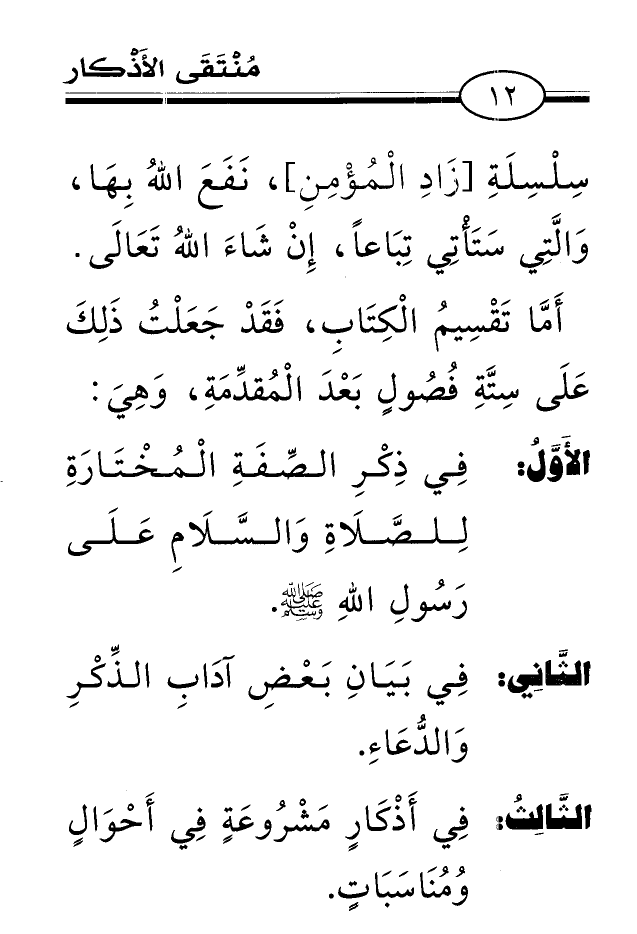 مُنْتَقَى الأَذْكار
١٢
سِلْسِلَةِ [زَادِ الْمُؤْمِنِ]، نَفَعَ اللهُ بِهَا،
وَالَّتِي سَتَأْتِي تِبَاعاً، إِنْ شَاءَ اللهُ تَعَالَى.
أَمَّا تَقْسِيمُ الْكِتَابِ، فَقَدْ جَعَلْتُ ذَلِكَ
عَلَى سِتَّةِ فُصُولٍ بَعْدَ الْمُقدِّمَةِ، وَهِيَ:
الأَوَّلُ: فِي ذِكْرِ الصِّفَةِ الْمُخْتَارَةِ
لِلصَّلَاةِ وَالسَّلَامِ عَلَى
رَسُولِ اللهِ ﷺ.
الثَّانِي: فِي بَيَانِ بَعْضِ آدَابِ الذِّكْرِ
وَالدُّعَاءِ.
الثَّالِثُ: فِي أَذْكَارٍ مَشْرُوعَةٍ فِي أَحْوَالٍ
وَمُنَاسَبَاتٍ.